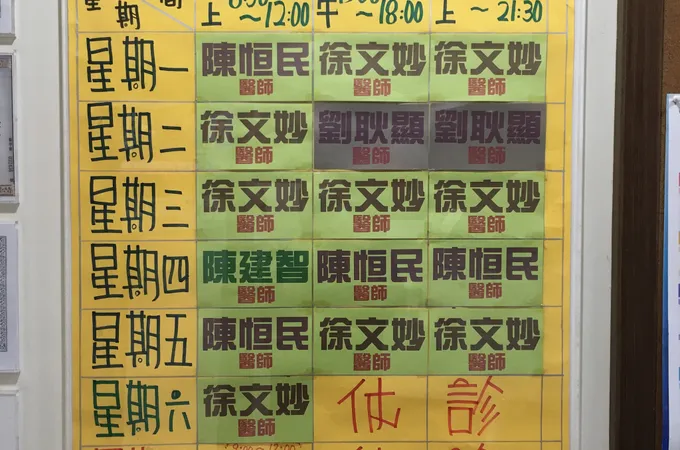 星期
上 ~12:00 午 ~18:00 上 ~21:30
星期一 陳恒民醫師 徐文妙醫師 徐文妙醫師
星期二 徐文妙醫師 劉耿顯醫師 劉耿顯醫師
星期三 徐文妙醫師 徐文妙醫師 徐文妙醫師
星期四 陳建智醫師 陳恒民醫師 陳恒民醫師
星期五 陳恒民醫師 徐文妙醫師 徐文妙醫師
星期六 徐文妙醫師 休 診